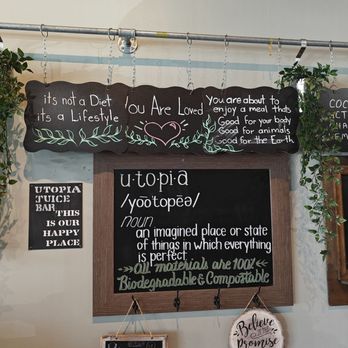 its not a Diet
its a Lifestyle
You Are Loved
you are about to
enjoy a meal thats
Good for your body
Good for animals
Good for the Earth
UTOPIA
JUICE
BAR
THIS
IS OUR
HAPPY
PLACE
u·to·pi·a
/yo͞otopēə/
noun
an imagined place or state
of things in which everything
is perfect.
All materials are 100%
Biodegradable & Compostable
Believe
PROMISE